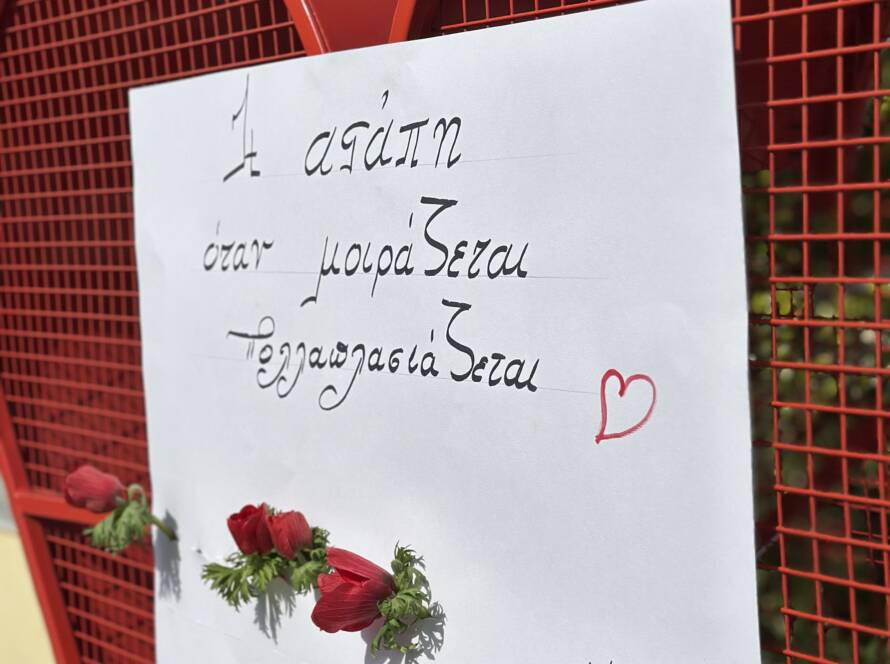 Η αγάπη
όταν μοιράζεται
πολλαπλασιάζεται